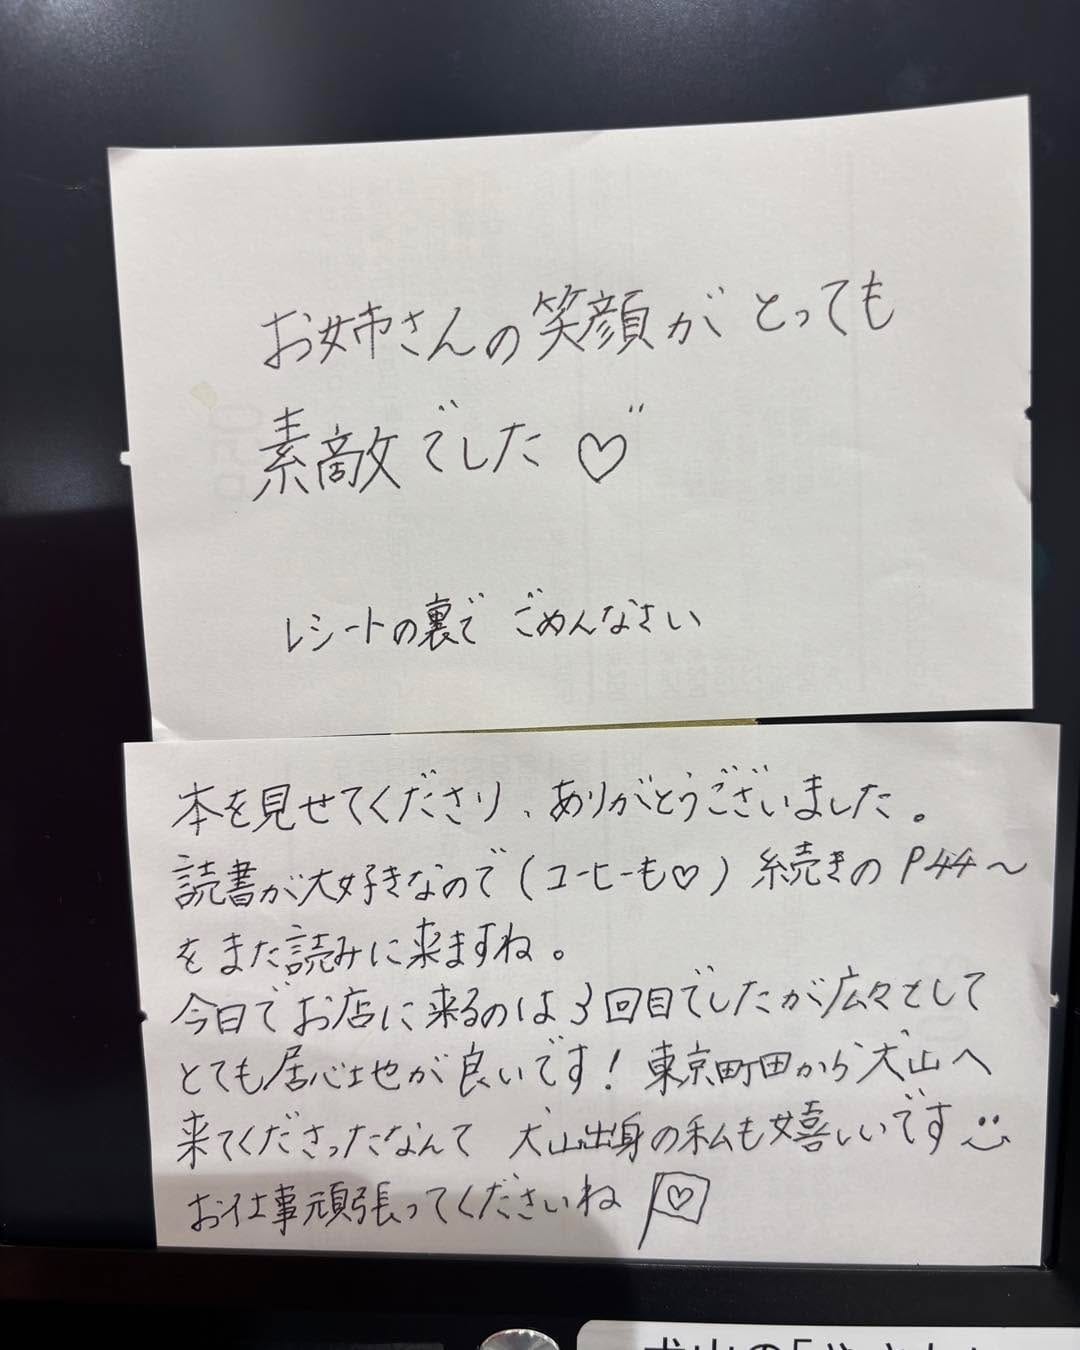 お姉さんの笑顔がとっても
素敵でした♡
レシートの裏で ごめんなさい
本を見せてくださり、ありがとうございました。
読書が大好きなので(コーヒーも♡)続きのP44〜
をまた読みに来ますね。
今日でお店に来るのは3回目でしたが広々として
とても居心地が良いです!東京町田から犬山へ
来てくださったなんて 犬山出身の私も嬉しいです
お仕事頑張ってくださいね